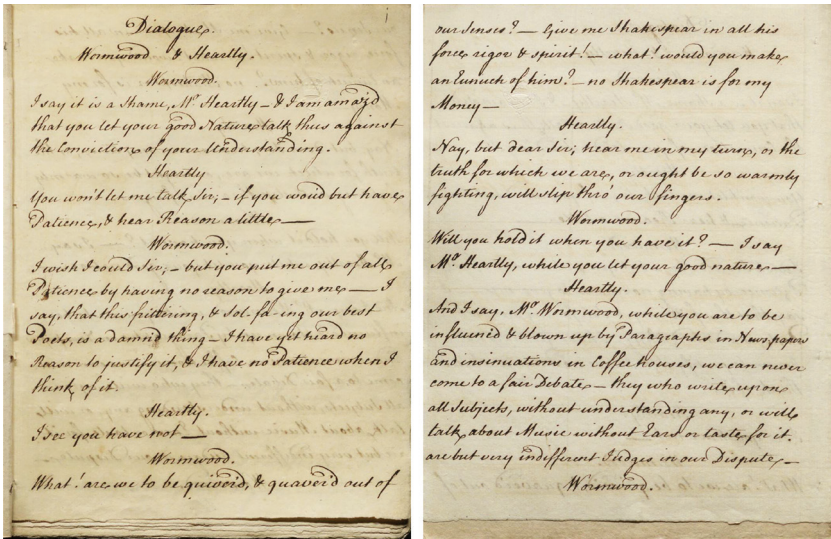 Dialogue.
Wormwood & Heartly.
Wormwood.
I say it is a shame, Mr Heartly – & I am amaz'd
that you let your good Nature talk thus against
the Conviction of your Understanding.
Heartly
You won't let me talk Sir; – if you wou'd but have
Patience, & hear Reason a little —
Wormwood.
I wish I could Sir, – but you put me out of all
Patience by having no reason to give me — I
say, that this frittering, & Sol-fa-ing our best
Poets, is a damn'd thing – I have yet heard no
Reason to justify it, & I have no Patience when I
think of it.
Heartly.
I see you have not —
Wormwood.
What! are we to be quiver'd, & quaver'd out of
our Senses? – Give me Shakespear in all his
force, rigor & spirit! – what! would you make
an Eunuch of him? – no Shakespear is for my
Money –
Heartly.
Nay, but dear Sir; hear me in my turn, or the
truth for which we are, or ought be so warmly
fighting, will slip thro' our fingers.
Wormwood.
Will you hold it when you have it? — I say
Mr Heartly, while you let your good nature —
Heartly.
And I say, Mr Wormwood, while you are to be
influenced & blown up by Paragraphs in News papers
and insinuations in Coffee houses, we can never
come to a fair Debate – they who write upon
all Subjects, without understanding any, or will
talk about Music without Ears or taste for it.
are but very indifferent Judges in our Dispute –
Wormwood.